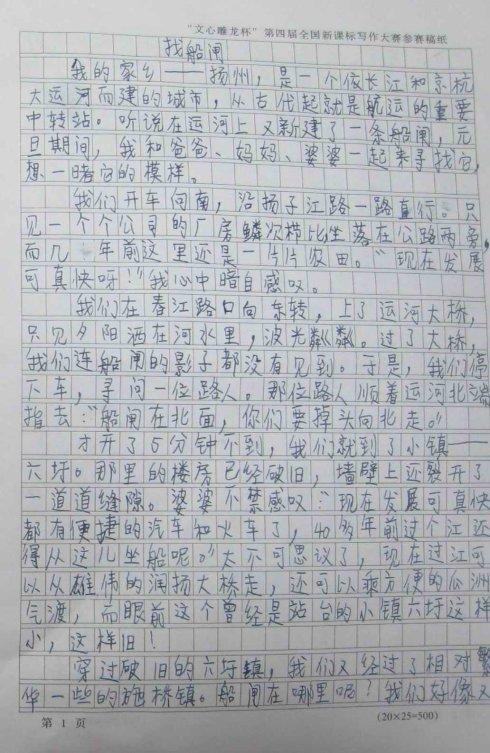 “文心雕龙杯”第四届全国新课标写作大赛参赛稿纸
找船闸
我的家乡——扬州，是一个依长江和京杭
大运河而建的城市，从古代起就是航运的重要
中转站。听说在运河上又新建了一条船闸，元
旦期间，我和爸爸、妈妈、婆婆一起来寻找它，
想一睹它的模样。
我们开车向南，沿扬子江路一路直行。只
见一个个公司的厂房鳞次栉比坐落在公路两旁，
而几年前这里还是一片片农田。“现在发展
可真快呀！”我心中暗自感叹。
我们在春江路口向东转，上了运河大桥，
只见夕阳洒在河水里，波光粼粼。过了大桥，
我们连船闸的影子都没有见到。于是，我们停
下车，寻问一位路人。那位路人顺着运河北端
指去：“船闸在北面，你们要掉头向北走。”
才开了5分钟不到，我们就到了小镇——
六圩。那里的楼房已经破旧，墙壁上还裂开了
一道道缝隙。婆婆不禁感叹：“现在发展可真快
都有便捷的汽车和火车了，40多年前过个江还
得从这儿坐船呢。”太不可思议了，现在过江可
以从雄伟的润扬大桥走，还可以乘方便的瓜洲
汽渡，而眼前这个曾经是站台的小镇六圩这样
小，这样旧！
穿过破旧的六圩镇，我们又经过了相对繁
华一些的施桥镇。船闸在哪里呢？我们好像又
第 1 页
(20×25=500)